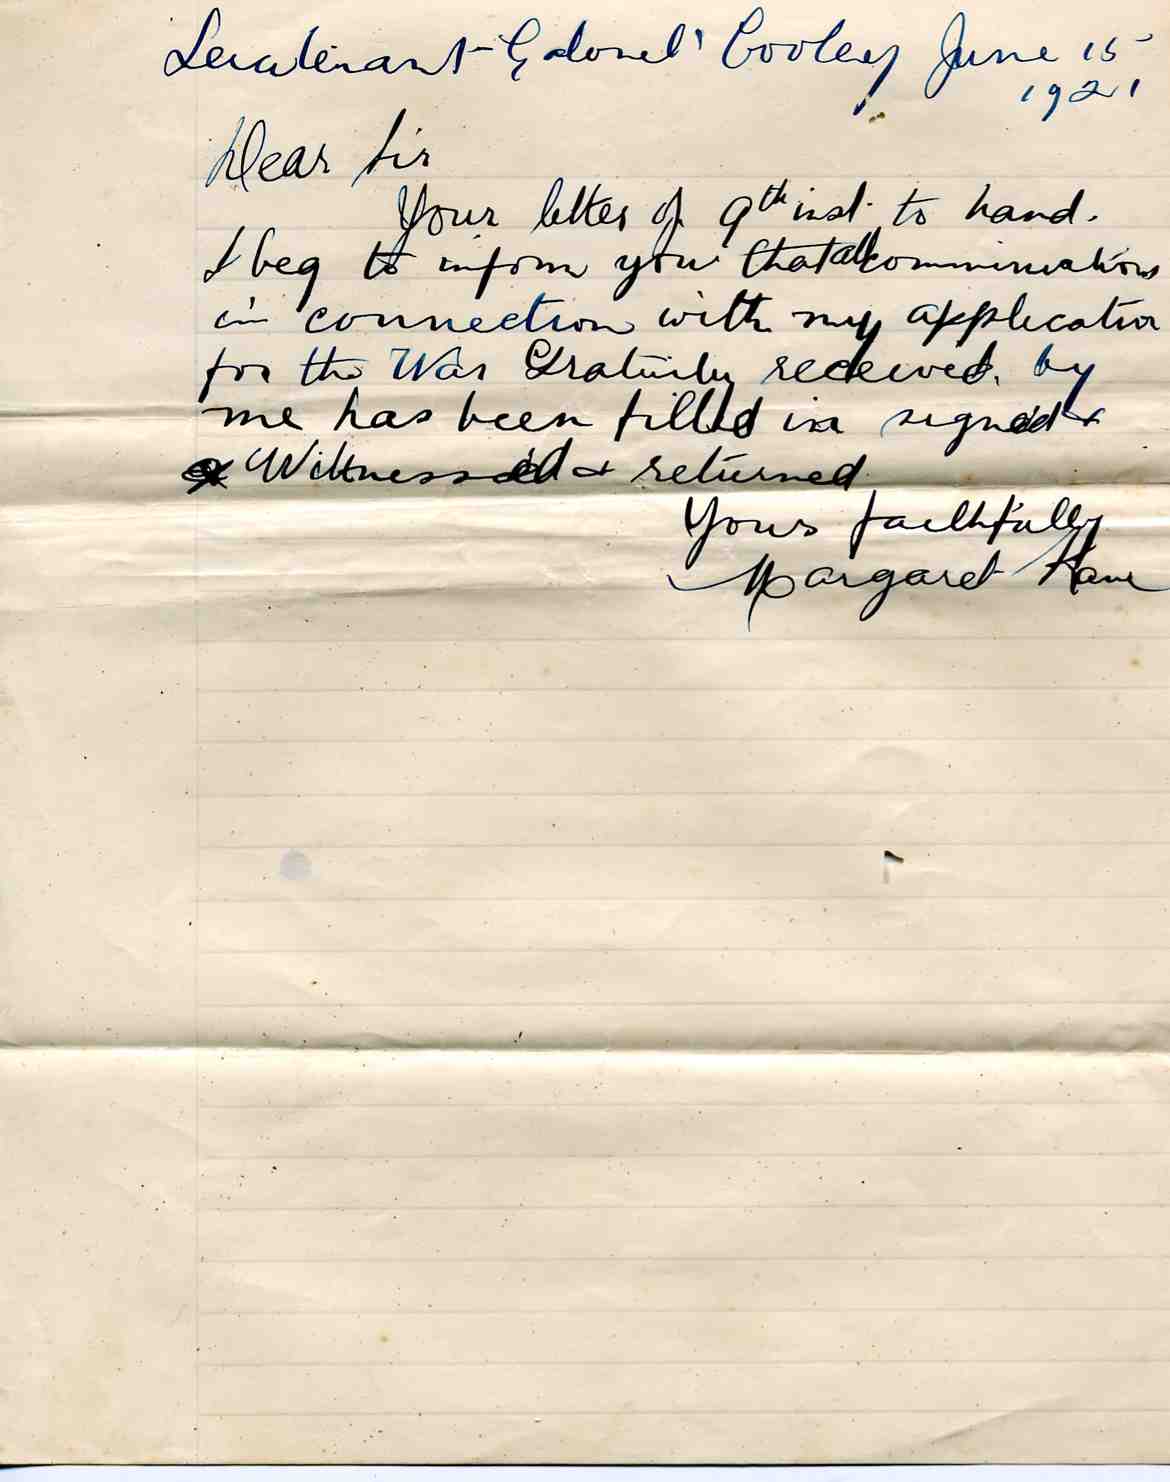 Lieutenant Colonel Cooley June 15
1921
Dear Sir
Your letter of 9th inst. to hand.
I beg to inform you that all communications
in connection with my application
for the War Gratuity received by
me has been filled in signed &
Witnessed & returned.
Yours faithfully
Margaret Kane